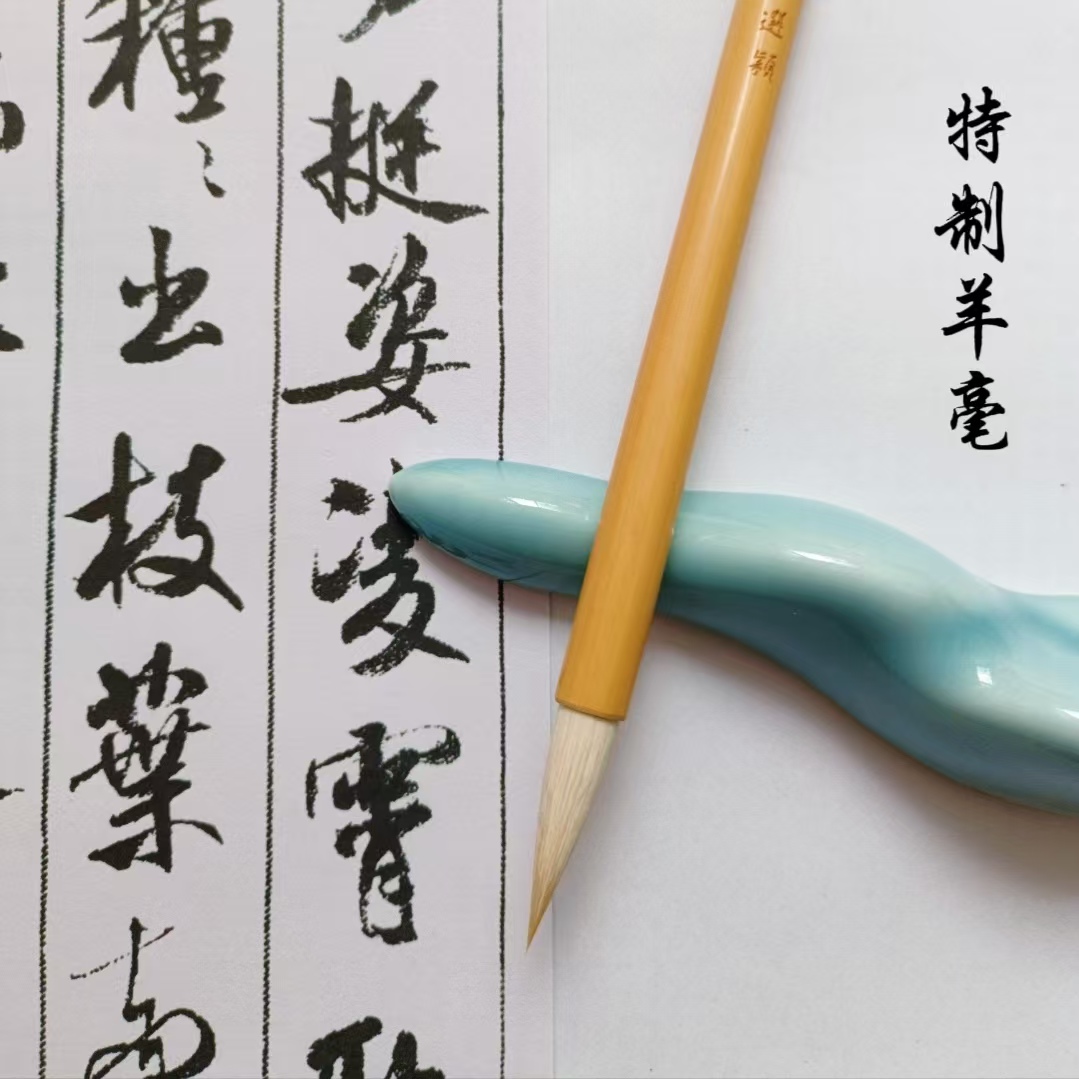 特制羊毫
選穎
挺姿凌霄
種〻出枝葉